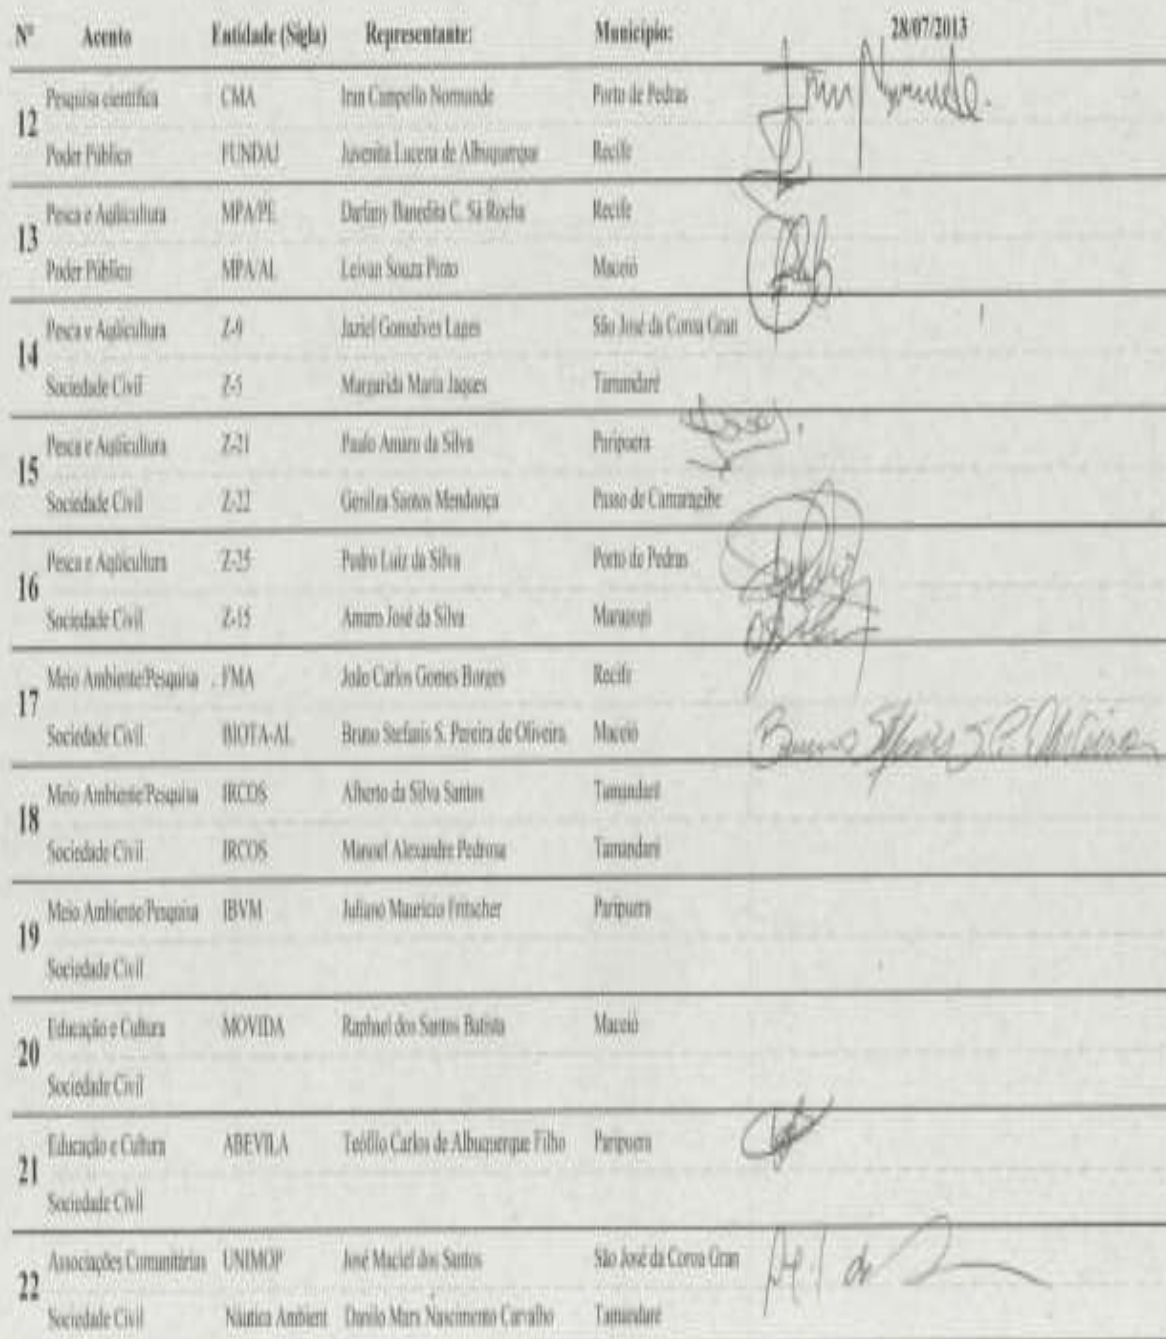 Nº Acento Entidade (Sigla) Representante: Município: 28/07/2013
12
Pesquisa científica CMA Iran Campello Normande Porto de Pedras
Iran Normande.
Poder Público FUNDAJ Juvenita Lucena de Albuquerque Recife
13
Pesca e Aqüicultura MPA/PE Darlany Banedita C. Sá Rocha Recife
Poder Público MPA/AL Leivan Souza Pinto Maceió
14
Pesca e Aqüicultura Z-9 Jaziel Gonsalves Lages São José da Coroa Gran
Sociedade Civil Z-5 Margarida Maria Jaques Tamandaré
15
Pesca e Aqüicultura Z-21 Paulo Amaro da Silva Paripuera
Sociedade Civil Z-22 Genilza Santos Mendonça Passo de Camaragibe
16
Pesca e Aqüicultura Z-25 Pedro Luiz da Silva Porto de Pedras
Sociedade Civil Z-15 Amaro José da Silva Maragogi
17
Meio Ambiente/Pesquisa FMA João Carlos Gomes Borges Recife
Sociedade Civil BIOTA-AL Bruno Stefanis S. Pereira de Oliveira Maceió
Bruno Stefanis S. P. Oliveira
18
Meio Ambiente/Pesquisa IRCOS Alberto da Silva Santos Tamandaré
Sociedade Civil IRCOS Manoel Alexandre Pedrosa Tamandaré
19
Meio Ambiente/Pesquisa IBVM Juliano Maurício Fritscher Paripuera
Sociedade Civil
20
Educação e Cultura MOVIDA Raphael dos Santos Batista Maceió
Sociedade Civil
21
Educação e Cultura ABEVILA Teófilo Carlos de Albuquerque Filho Paripuera
Sociedade Civil
22
Associações Comunitárias UNIMOP José Maciel dos Santos São José da Coroa Gran
Sociedade Civil Náutica Ambient Danilo Marx Nascimento Carvalho Tamandaré